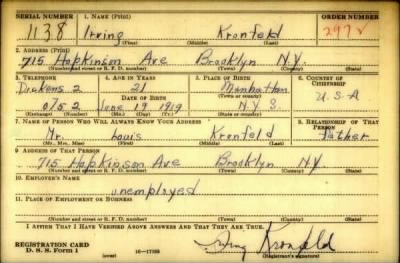 SERIAL NUMBER 1. NAME (Print) ORDER NUMBER
1138 Irving Kronfeld 2972
(First) (Middle) (Last)
2. ADDRESS (Print)
715 Hopkinson Ave Brooklyn N.Y.
(Number and street or R. F. D. number) (Town) (County) (State)
3. TELEPHONE 4. AGE IN YEARS 5. PLACE OF BIRTH 6. COUNTRY OF CITIZENSHIP
Dickens 2 21 Manhattan
DATE OF BIRTH (Town or county) U.S.A
0752 June 19 1919 N.Y.S.
(Exchange) (No.) (Mo.) (Day) (Yr.) (State or country)
7. NAME OF PERSON WHO WILL ALWAYS KNOW YOUR ADDRESS 8. RELATIONSHIP OF THAT PERSON
Mr. Louis Kronfeld Father
(Mr., Mrs., Miss) (First) (Middle) (Last)
9. ADDRESS OF THAT PERSON
715 Hopkinson Ave Brooklyn N.Y.
(Number and street or R. F. D. number) (Town) (County) (State)
10. EMPLOYER'S NAME
unemployed
11. PLACE OF EMPLOYMENT OR BUSINESS
(Number and street or R. F. D. number) (Town) (County) (State)
I AFFIRM THAT I HAVE VERIFIED ABOVE ANSWERS AND THAT THEY ARE TRUE.
REGISTRATION CARD
D. S. S. Form 1 (over) 16—17105 Irving Kronfeld
(Registrant's signature)